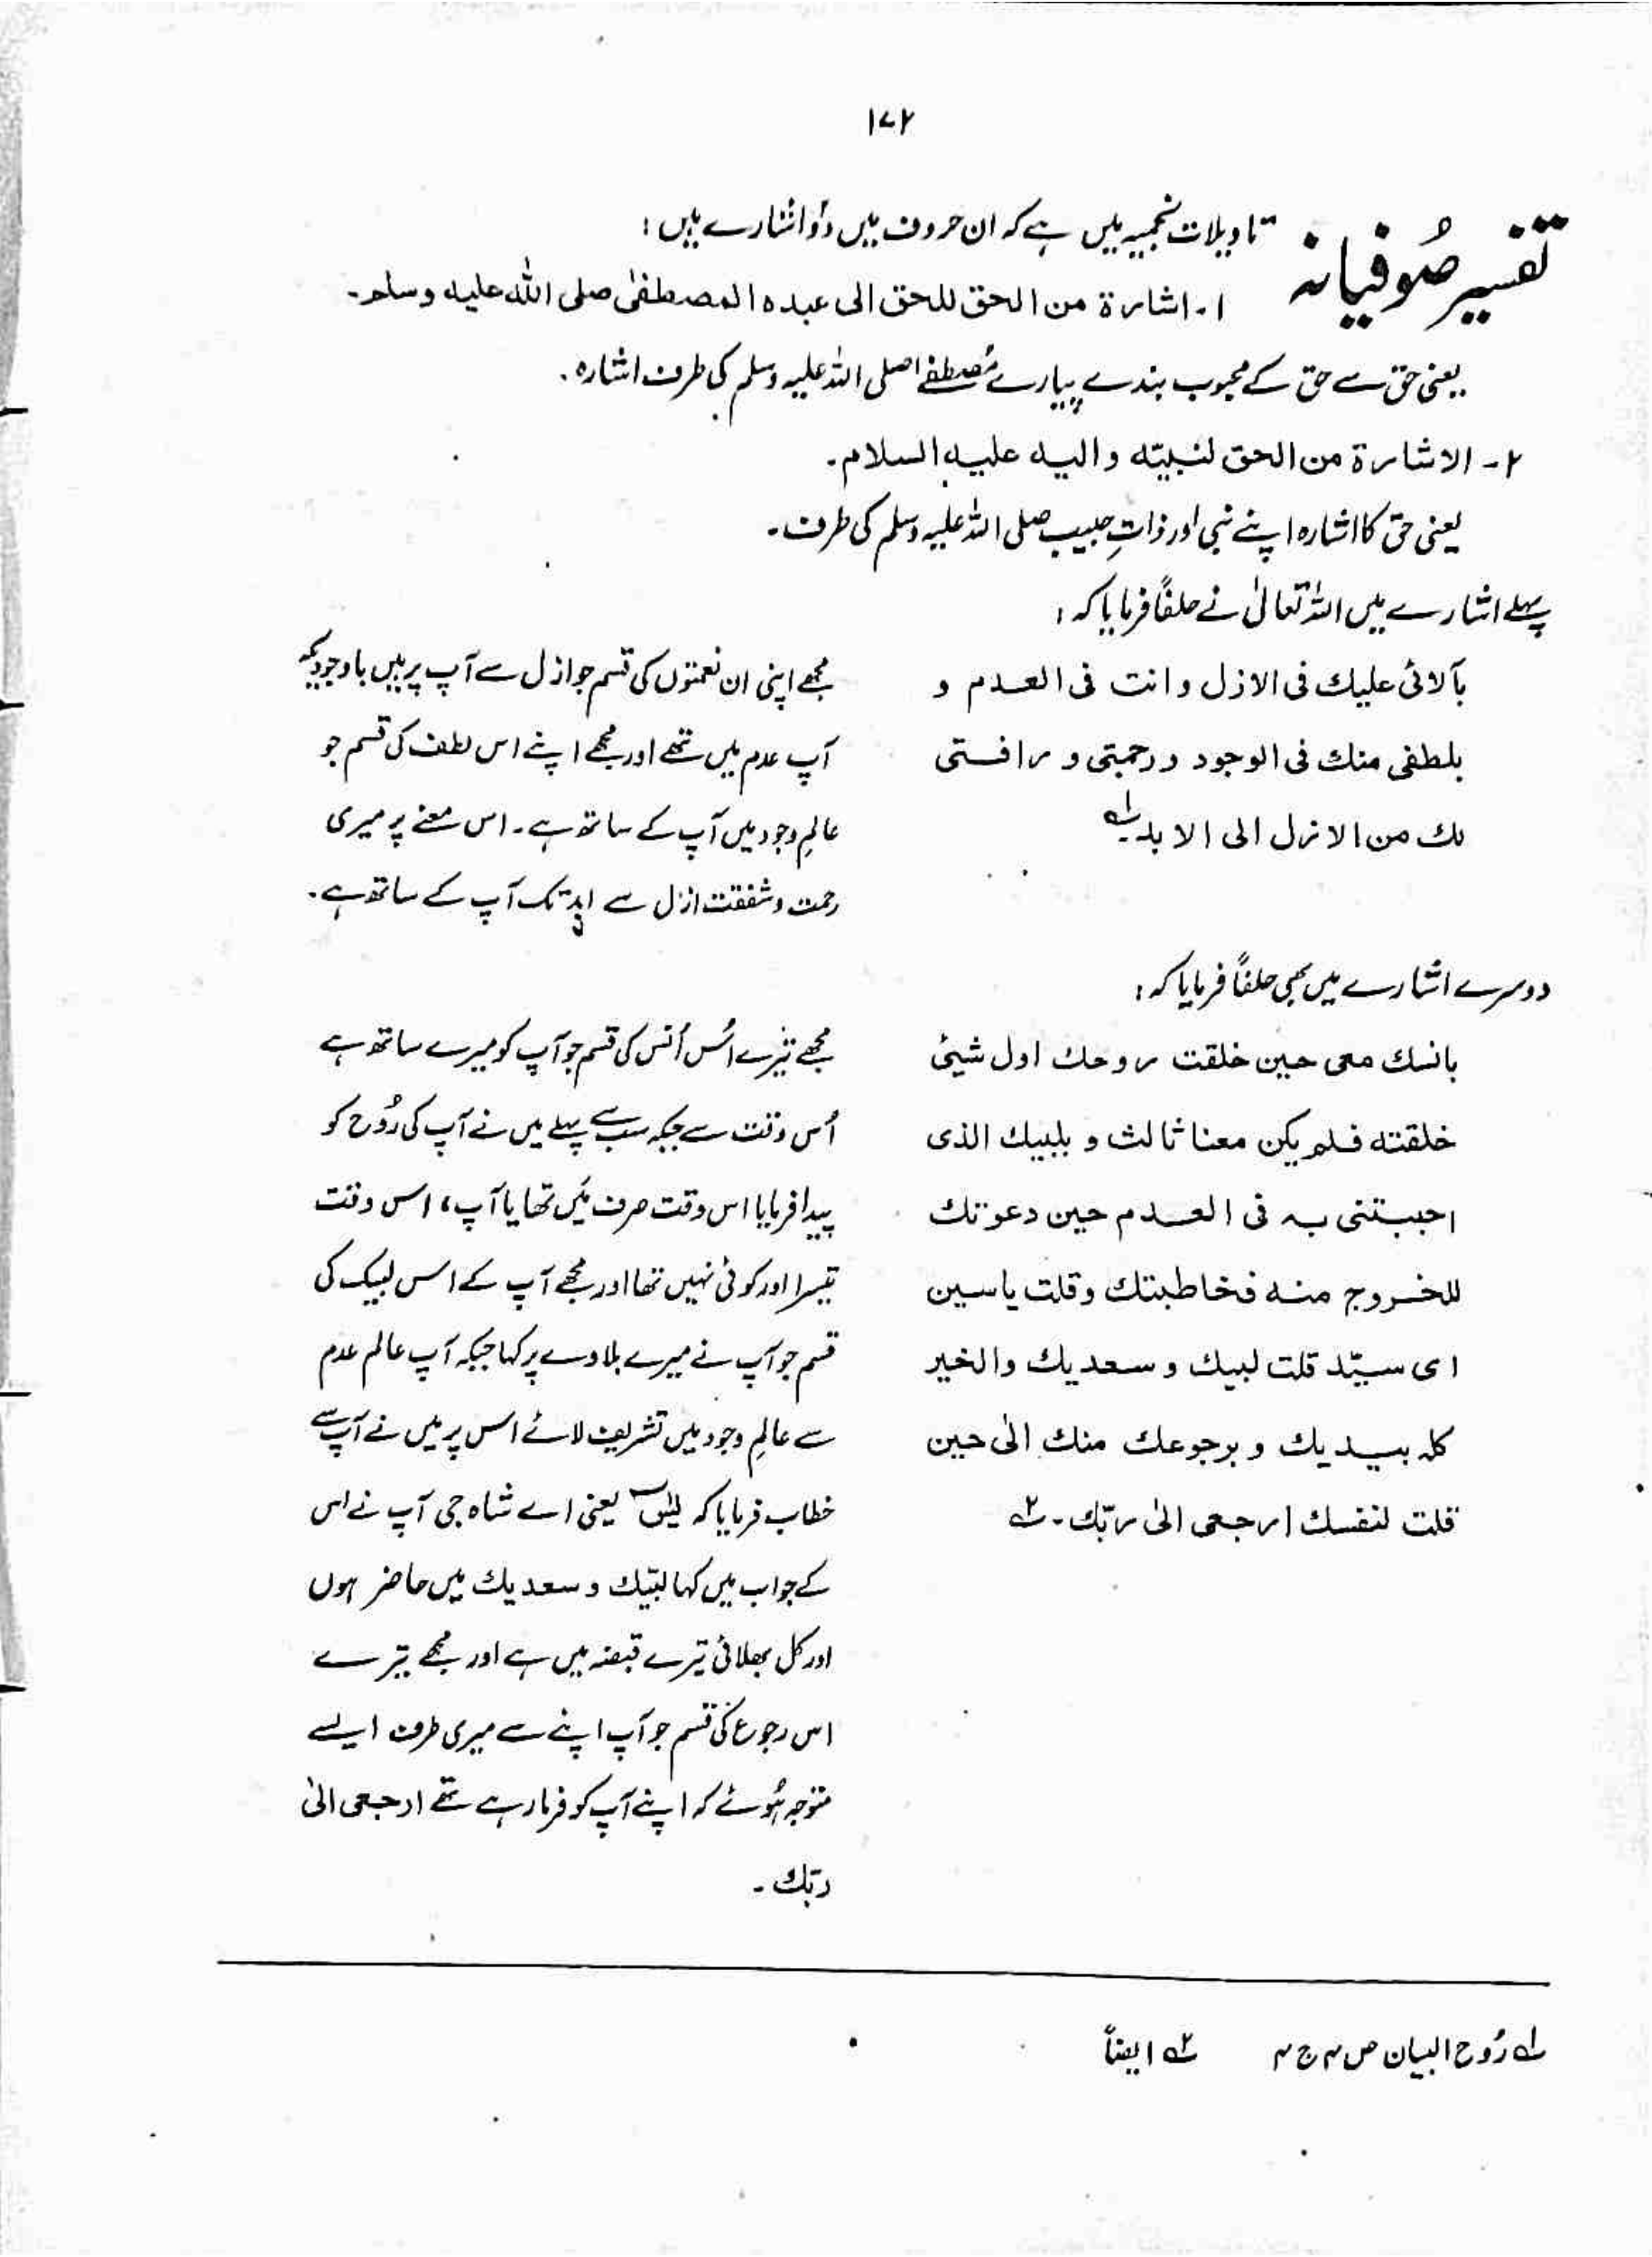 ۱۷۲
تفسیر صُوفیانہ
تاویلات نجمیہ میں ہے کہ ان حروف میں دو اشارے ہیں:
۱۔ اشارة من الحق للحق الى عبده المصطفىٰ صلى الله عليه وسلم۔
یعنی حق سے حق کے محبوب بندے پیارے مُصطفےٰ صلی اللہ علیہ وسلم کی طرف اشارہ۔
۲۔ الاشارة من الحق لنبيّه واليه عليه السلام۔
یعنی حق کا اشارہ اپنے نبی اور ذاتِ حبیب صلی اللہ علیہ وسلم کی طرف۔
پہلے اشارے میں اللہ تعالیٰ نے حلفاً فرمایا کہ:
بآلائی علیك فی الازل وانت فی العدم و
بلطفی منك فی الوجود ورحمتی و رافستی
لك من الازل الی الابد۔ لہ۱
مجھے اپنی ان نعمتوں کی قسم جو ازل سے آپ پر ہیں باوجودیکہ
آپ عدم میں تھے اور مجھے اپنے اس لطف کی قسم جو
عالمِ وجود میں آپ کے ساتھ ہے۔ اس معنے پر میری
رحمت و شفقت ازل سے ابد تک آپ کے ساتھ ہے۔
دوسرے اشارے میں بھی حلفاً فرمایا کہ:
بانسك معی حین خلقت روحك اول شیئ
خلقته فلم یکن معنا ثالث و بلبیك الذی
اجبتنی به فی العدم حین دعوتك
للخروج منه فخاطبتك وقلت یاسین
ای سیّد قلت لبیك و سعدیك والخیر
کله بیدیك و برجوعك منك الیٰ حین
قلت لنفسك ارجعی الیٰ ربّك۔ ۲ہ
مجھے تیرے اُس اُنس کی قسم جو آپ کو میرے ساتھ ہے
اُس وقت سے جبکہ سب سے پہلے میں نے آپ کی رُوح کو
پیدا فرمایا اس وقت صرف مَیں تھا یا آپ، اس وقت
تیسرا اور کوئی نہیں تھا اور مجھے آپ کے اس لبیک کی
قسم جو آپ نے میرے بلاوے پر کہا جبکہ آپ عالم عدم
سے عالمِ وجود میں تشریف لائے اس پر میں نے آپ سے
خطاب فرمایا کہ یٰسٓ یعنی اے شاہ جی آپ نے اس
کے جواب میں کہا لبّیك و سعدیك میں حاضر ہوں
اور کل بھلائی تیرے قبضہ میں ہے اور مجھے تیرے
اس رجوع کی قسم جو آپ اپنے سے میری طرف ایسے
متوجہ ہُوئے کہ اپنے آپ کو فرما رہے تھے ارجعی الیٰ
ربّك۔
لہ۱ رُوح البیان ص ۳ ج ۳ ۲ہ ایضاً